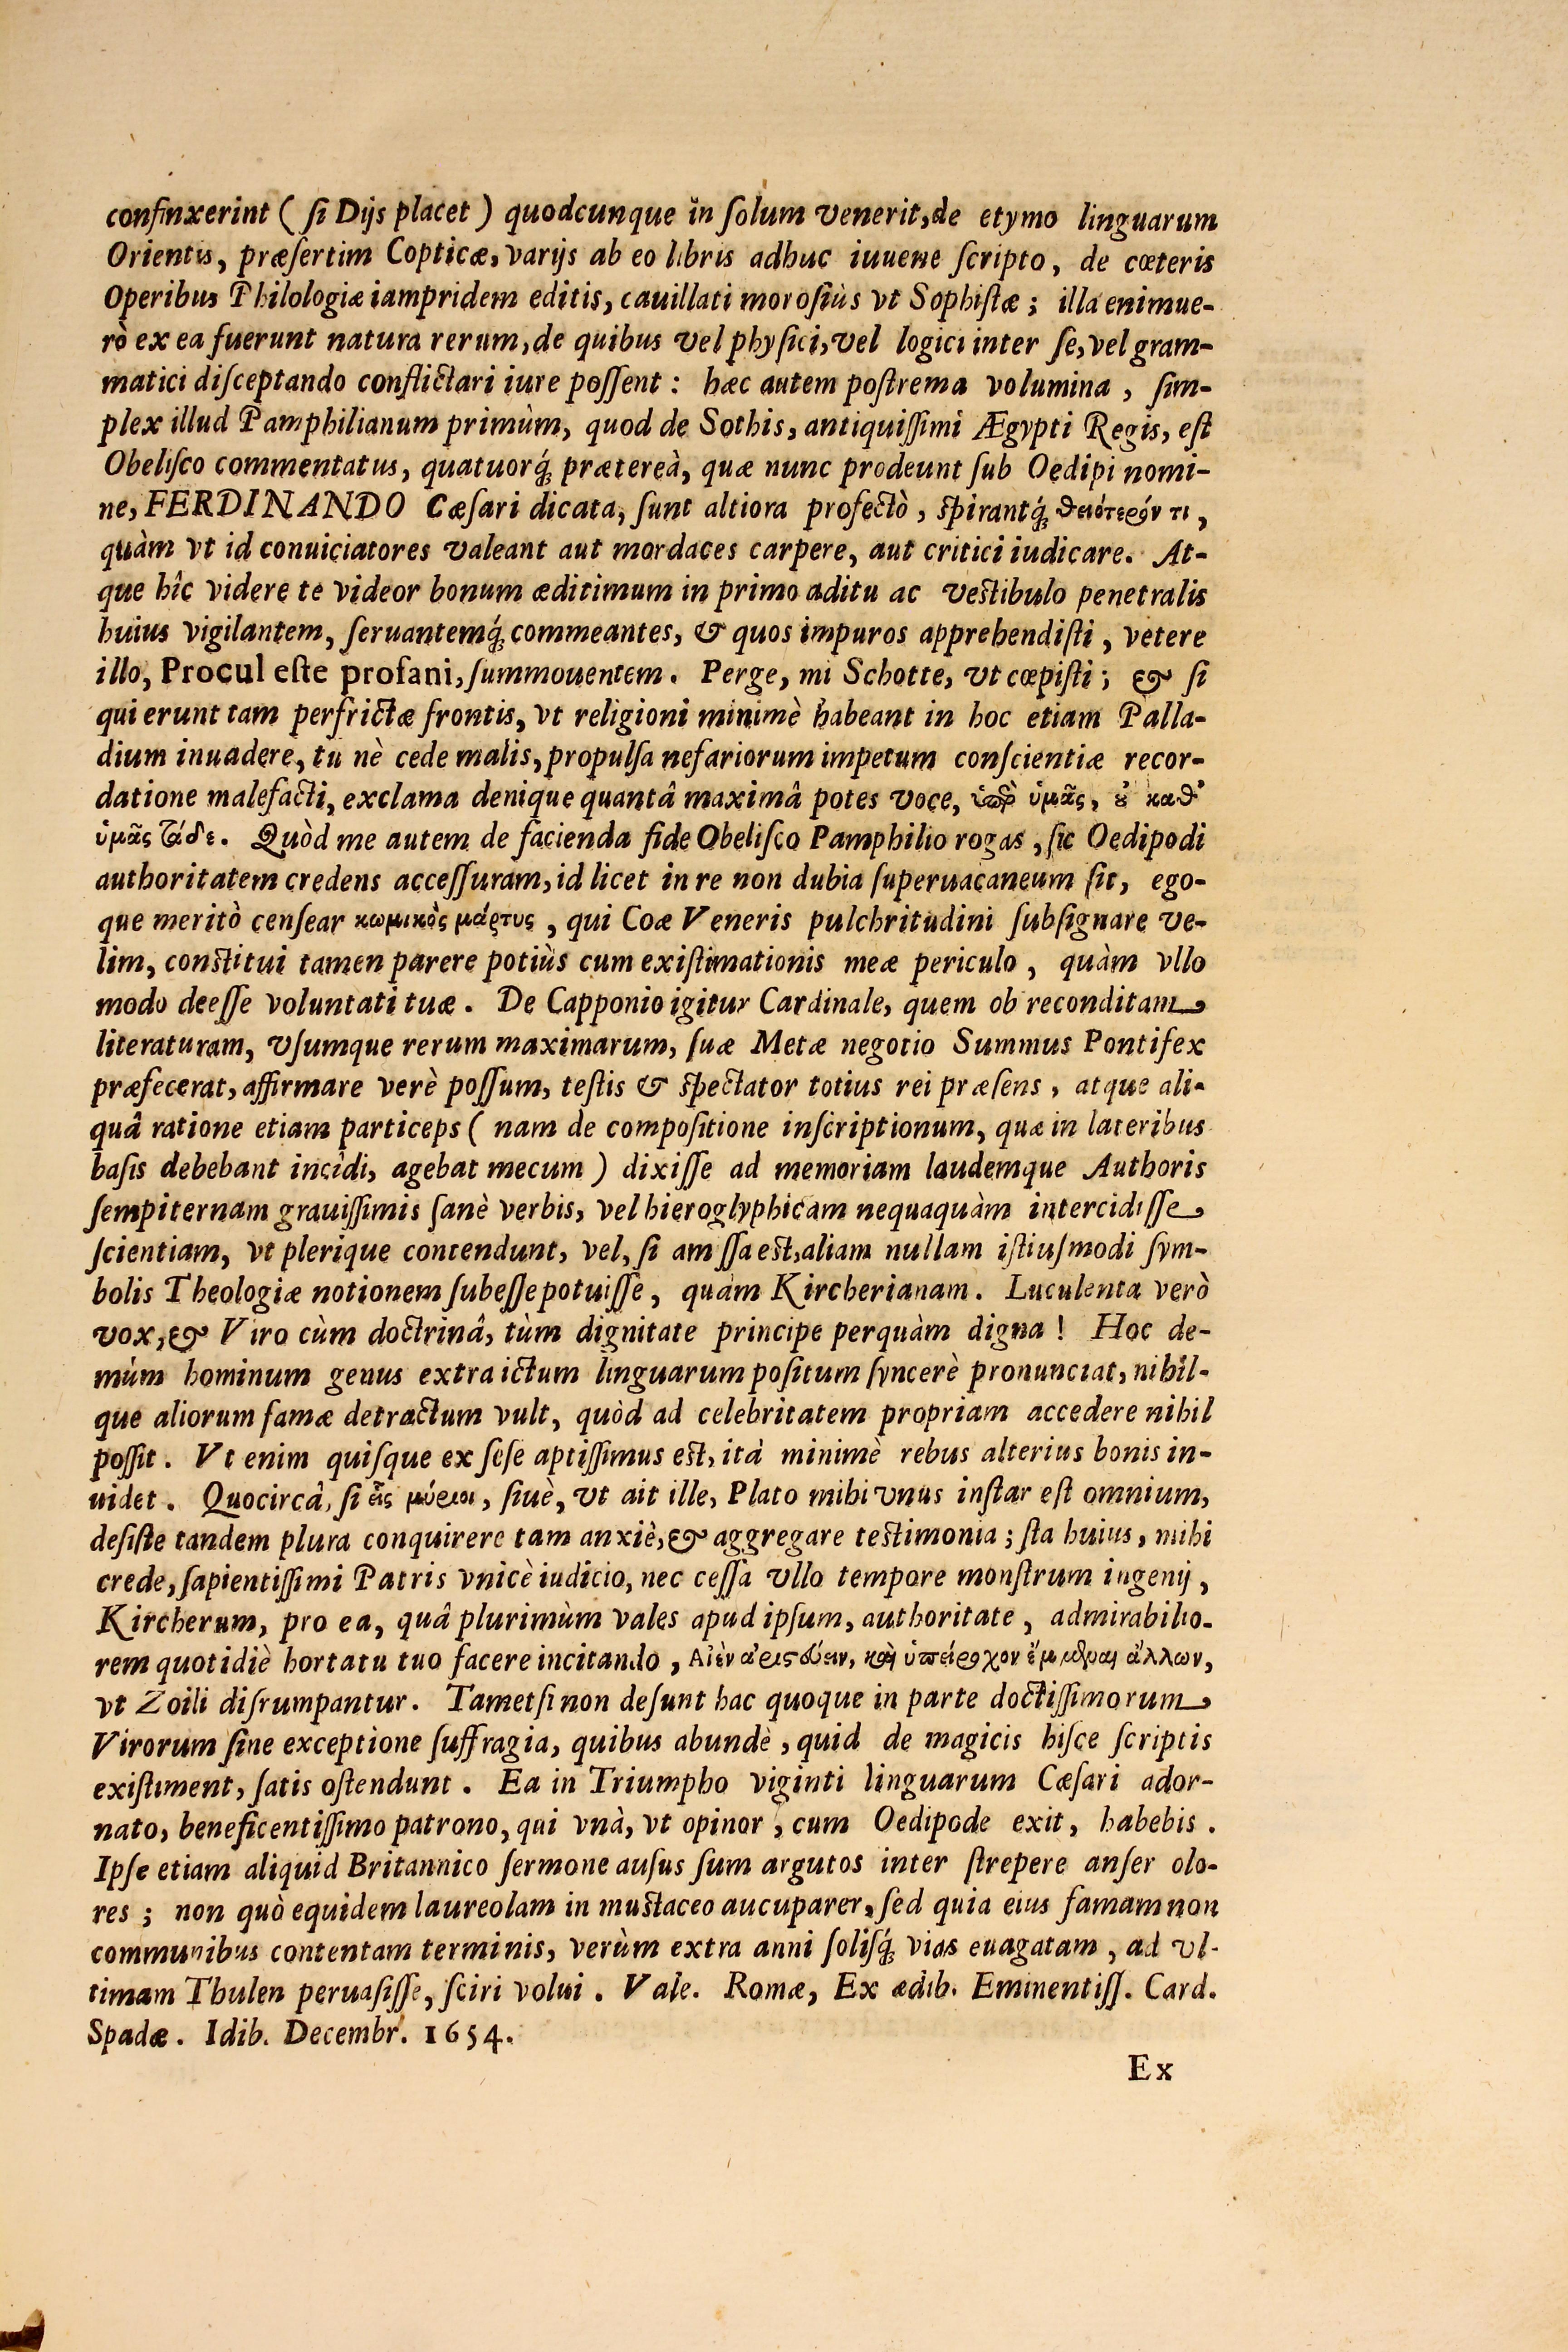 confinxerint ( ſi Dijs placet ) quodcunque in ſolum venerit, de etymo linguarum
Orientis, præſertim Copticæ, varijs ab eo libris adhuc iuuene ſcripto, de cœteris
Operibus Philologiæ iampridem editis, cauillati moroſiùs vt Sophiſtæ ; illa enimue-
rò ex ea fuerunt natura rerum, de quibus vel phyſici, vel logici inter ſe, vel gram-
matici diſceptando conflictari iure poſſent : hæc autem poſtrema volumina , ſim-
plex illud Pamphilianum primùm, quod de Sothis, antiquiſſimi Ægypti Regis, eſt
Obeliſco commentatus, quatuorq́; prætereà, quæ nunc prodeunt ſub Oedipi nomi-
ne, FERDINANDO Cæſari dicata, ſunt altiora profectò , ſpirantq́; θειότερόν τι ,
quàm vt id conuiciatores valeant aut mordaces carpere, aut critici iudicare. At-
que hîc videre te videor bonum æditimum in primo aditu ac veſtibulo penetralis
huius vigilantem, ſeruantemq́; commeantes, & quos impuros apprehendiſti , vetere
illo, Procul eſte profani, ſummouentem. Perge, mi Schotte, vt cœpiſti ; & ſi
qui erunt tam perfrictæ frontis, vt religioni minimè habeant in hoc etiam Palla-
dium inuadere, tu nè cede malis, propulſa nefariorum impetum conſcientiæ recor-
datione malefacti, exclama denique quantâ maximâ potes voce, ὑπὲρ ὑμᾶς, ȣ̓ καθ᾽
ὑμᾶς τάδε. Quòd me autem de facienda fide Obeliſco Pamphilio rogas , ſic Oedipodi
authoritatem credens acceſſuram, id licet in re non dubia ſuperuacaneum ſit, ego-
que meritò cenſear κωμικὸς μάρτυς , qui Coæ Veneris pulchritudini ſubſignare ve-
lim, conſtitui tamen parere potiùs cum exiſtimationis meæ periculo , quàm vllo
modo deeſſe voluntati tuæ . De Capponio igitur Cardinale, quem ob reconditam
literaturam, vſumque rerum maximarum, ſuæ Metæ negotio Summus Pontifex
præfecerat, affirmare verè poſſum, teſtis & ſpectator totius rei præſens , atque ali-
quâ ratione etiam particeps ( nam de compoſitione inſcriptionum, quæ in lateribus
baſis debebant incìdi, agebat mecum ) dixiſſe ad memoriam laudemque Authoris
ſempiternam grauiſſimis ſanè verbis, vel hieroglyphicam nequaquàm intercidiſſe
ſcientiam, vt plerique contendunt, vel, ſi amiſſa eſt, aliam nullam iſtiuſmodi ſym-
bolis Theologiæ notionem ſubeſſe potuiſſe , quàm Kircherianam. Luculenta verò
vox, & Viro cùm doctrinâ, tùm dignitate principe perquàm digna ! Hoc de-
mùm hominum genus extra ictum linguarum poſitum ſyncerè pronunciat, nihil-
que aliorum famæ detractum vult, quòd ad celebritatem propriam accedere nihil
poſſit . Vt enim quiſque ex ſeſe aptiſſimus eſt, ità minimè rebus alterius bonis in-
uidet . Quocircâ, ſi εἷς μύριοι , ſiuè, vt ait ille, Plato mihi vnus inſtar eſt omnium,
deſiſte tandem plura conquirere tam anxiè, & aggregare teſtimonia ; ſta huius , mihi
crede, ſapientiſſimi Patris vnicè iudicio, nec ceſſa vllo tempore monſtrum ingenij ,
Kircherum, pro ea, quâ plurimùm vales apud ipſum, authoritate , admirabilio-
rem quotidiè hortatu tuo facere incitando , Αἰὲν ἀριστεύειν, καὶ ὑπείροχον ἔμμεναι ἄλλων,
vt Zoili diſrumpantur . Tametſi non deſunt hac quoque in parte doctiſſimorum
Virorum ſine exceptione ſuffragia, quibus abundè , quid de magicis hiſce ſcriptis
exiſtiment, ſatis oſtendunt . Ea in Triumpho viginti linguarum Cæſari ador-
nato, beneficentiſſimo patrono, qui vnà, vt opinor , cum Oedipode exit, habebis .
Ipſe etiam aliquid Britannico ſermone auſus ſum argutos inter ſtrepere anſer olo-
res ; non quò equidem laureolam in muſtaceo aucuparer, ſed quia eius famam non
communibus contentam terminis, verùm extra anni ſoliſq́; vias euagatam , ad vl-
timam Thulen peruaſiſſe, ſciri volui . Vale. Romæ, Ex ædib. Eminentiſſ. Card.
Spadæ . Idib. Decembr. 1654.
Ex